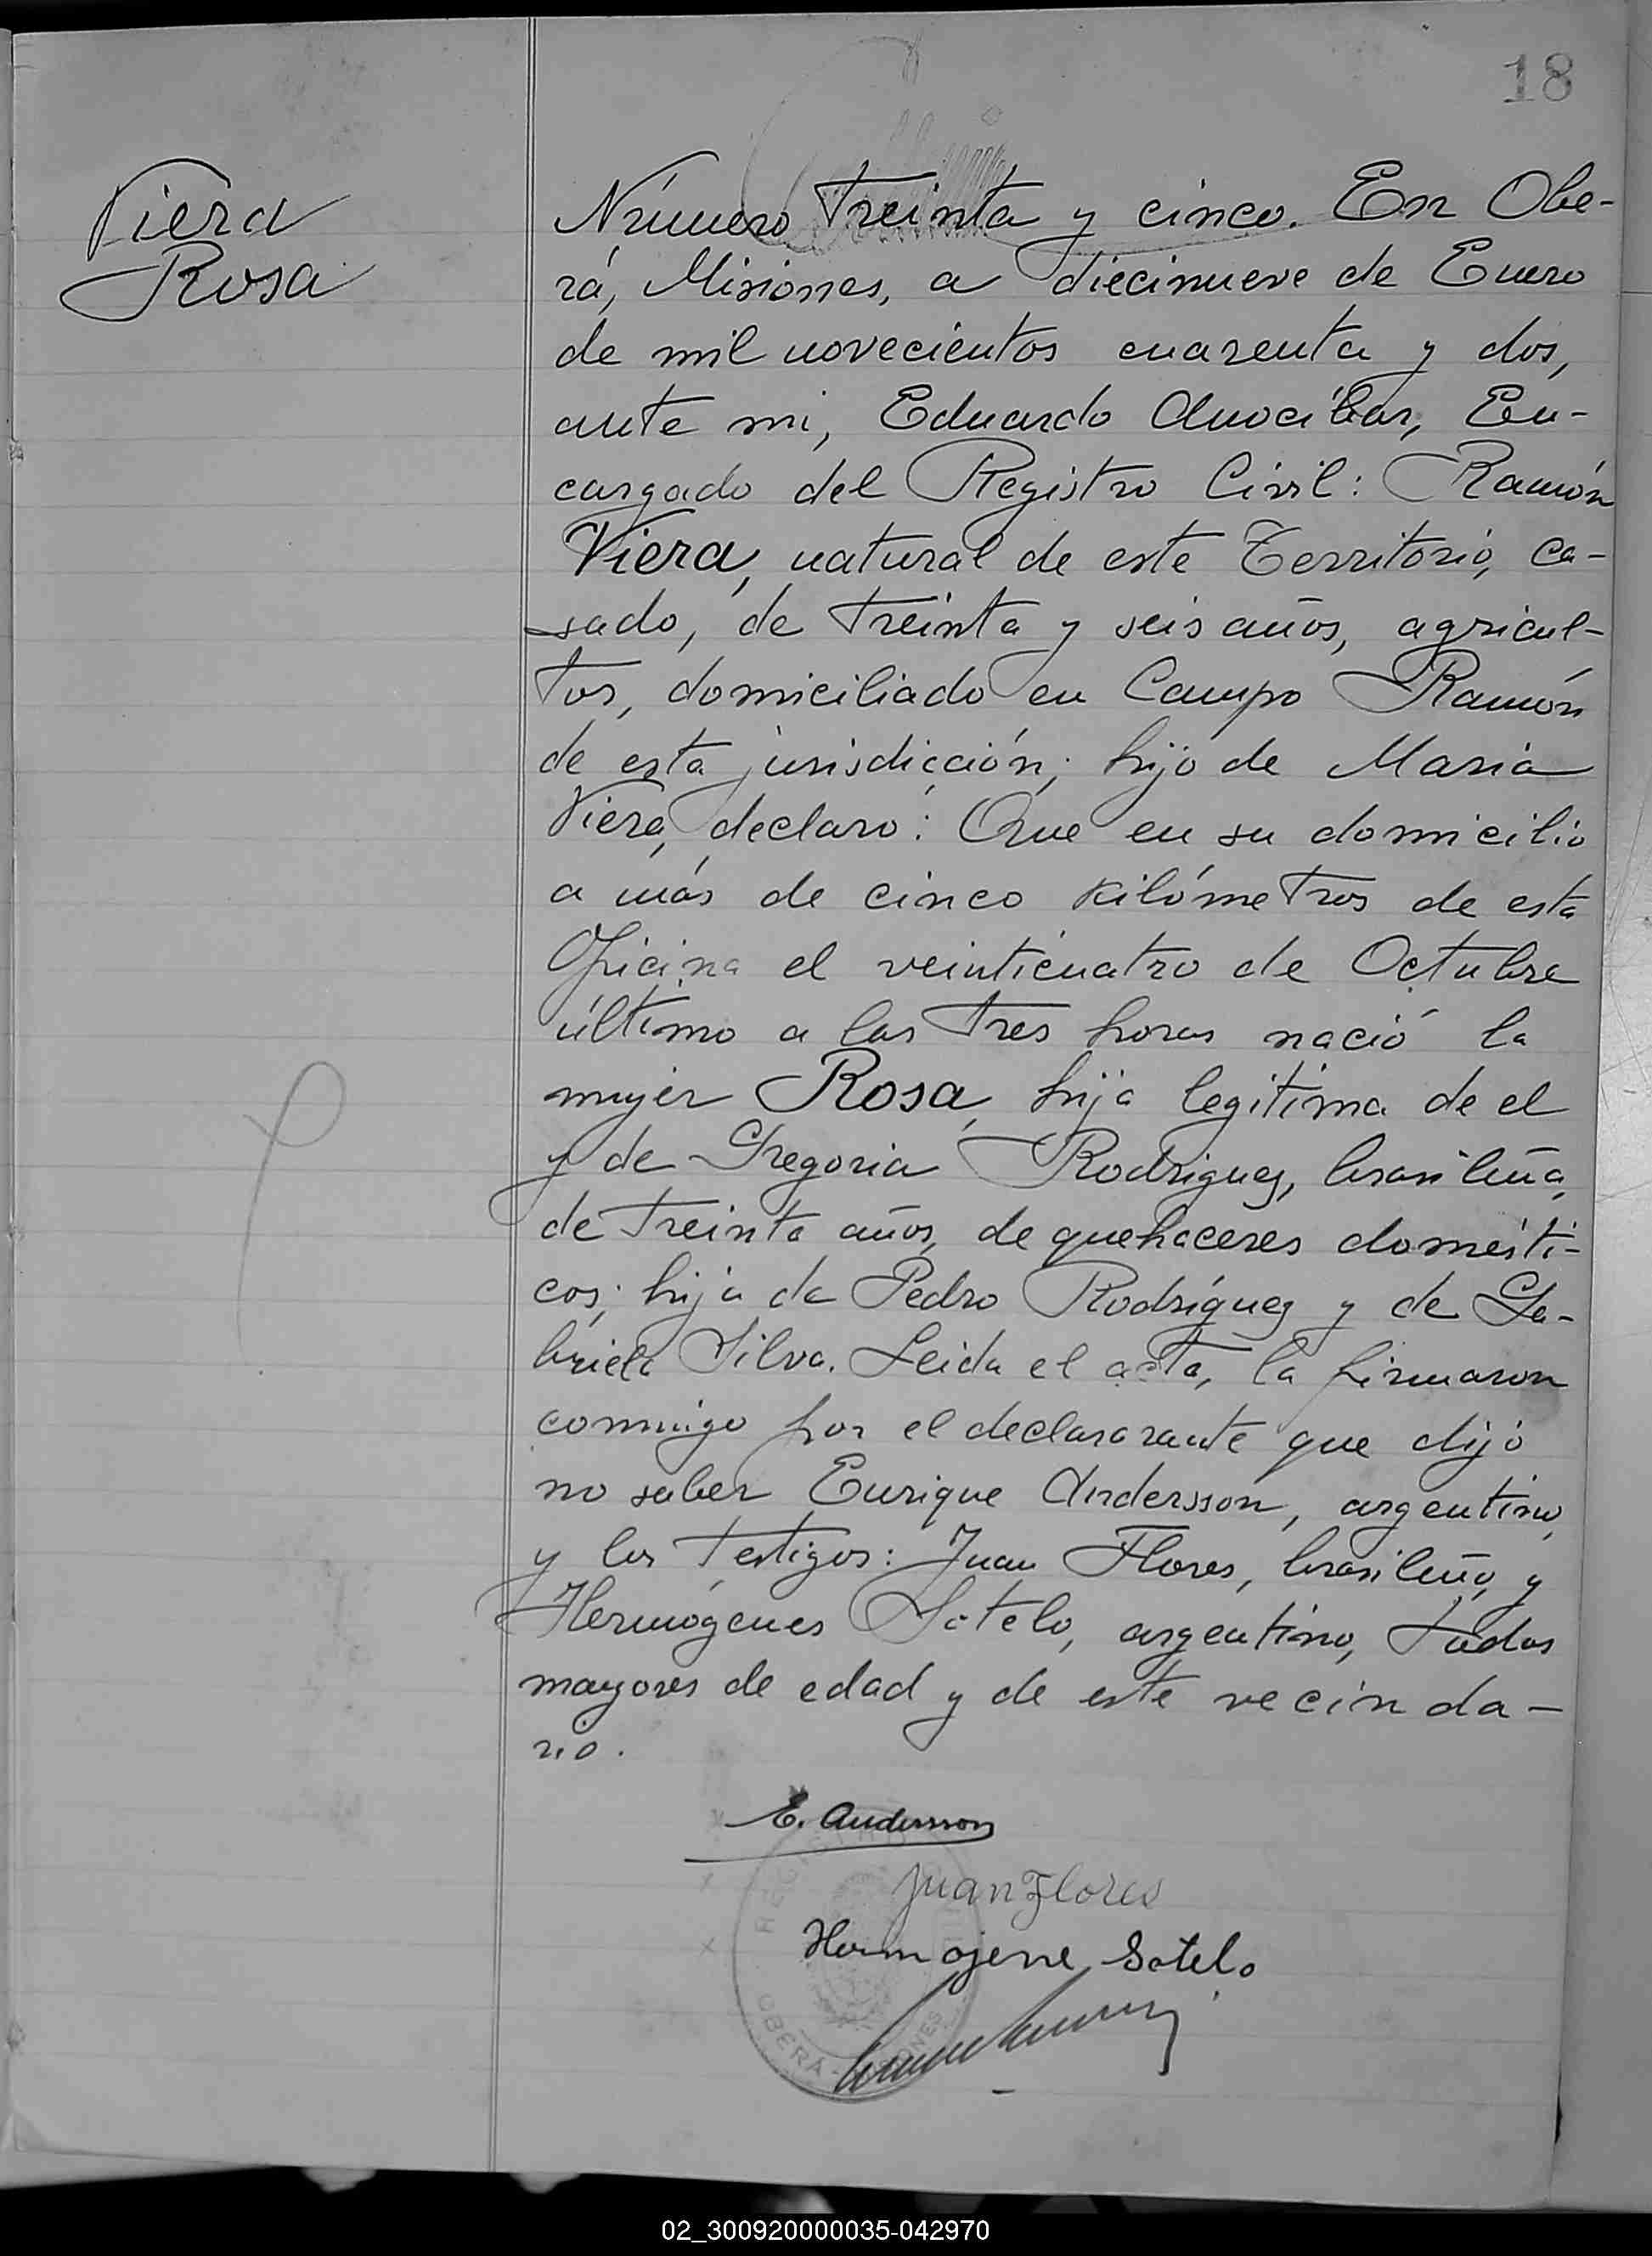 18
Viera
Rosa
Número treinta y cinco. En Obe-
rá, Misiones, a diecinueve de Enero
de mil novecientos cuarenta y dos,
ante mi, Eduardo Anocíbar, En-
cargado del Registro Civil: Ramón
Viera, natural de este Territorio, ca-
sado, de treinta y seis años, agricul-
tor, domiciliado en Campo Ramón
de esta jurisdicción; hijo de Maria
Viera, declaró: Que en su domicilio
a más de cinco kilómetros de esta
Oficina el veinticuatro de Octubre
último a las tres horas nació la
mujer Rosa, hija legitima de el
y de Gregoria Rodriguez, brasileña,
de treinta años, de quehaceres domésti-
cos; hija de Pedro Rodríguez y de Ga-
briela Silva. Leida el acta, la firmaron
conmigo por el declararante que dijó
no saber Enrique Andersson, argentino,
y los testigos: Juan Flores, brasileño, y
Hermógenes Sotelo, argentino, todos
mayores de edad y de este vecinda-
rio.
E. Andersson
Juan Flores
Hermojene Sotelo
REGISTRO
OBERÁ - MISIONES
02_300920000035-042970